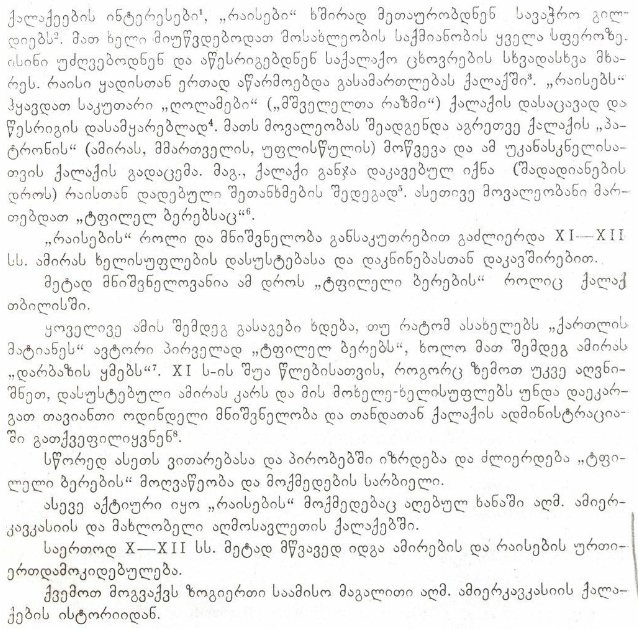 ქალაქეების ინტერესები¹, „რაისები“ ხშირად მეთაურობდნენ სავაჭრო გილ-
დიებს². მათ ხელი მიუწვდებოდათ მოსახლეობის საქმიანობის ყველა სფეროზე.
ისინი უძღვებოდნენ და აწესრიგებდნენ საქალაქო ცხოვრების სხვადასხვა მხა-
რეს. რაისი ყადისთან ერთად აწარმოებდა გასამართლებას ქალაქში³. „რაისებს“
ჰყავდათ საკუთარი „ღოლამები“ („მშველელთა რაზმი“) ქალაქის დასაცავად და
წესრიგის დასამყარებლად⁴. მათს მოვალეობას შეადგენდა აგრეთვე ქალაქის „პა-
ტრონის“ (ამირას, მმართველის, უფლისწულის) მოწვევა და ამ უკანასკნელისა-
თვის ქალაქის გადაცემა. მაგ., ქალაქი განჯა დაკავებულ იქნა (შადადიანების
დროს) რაისთან დადებული შეთანხმების შედეგად⁵. ასეთივე მოვალეობანი მარ-
თებდათ „ტფილელ ბერებსაც“⁶.
„რაისების“ როლი და მნიშვნელობა განსაკუთრებით გაძლიერდა XI—XII
სს. ამირას ხელისუფლების დასუსტებასა და დაკნინებასთან დაკავშირებით.
მეტად მნიშვნელოვანია ამ დროს „ტფილელი ბერების“ როლიც ქალაქ
თბილისში.
ყოველივე ამის შემდეგ გასაგები ხდება, თუ რატომ ასახელებს „ქართლის
მატიანეს“ ავტორი პირველად „ტფილელ ბერებს“, ხოლო მათ შემდეგ ამირას
„დარბაზის ყმებს“⁷. XI ს-ის შუა წლებისათვის, როგორც ზემოთ უკვე აღვნი-
შნეთ, დასუსტებული ამირას კარს და მის მოხელე-ხელისუფლებს უნდა დაეკარ-
გათ თავიანთი ოდინდელი მნიშვნელობა და თანდათან ქალაქის ადმინისტრაცია-
ში გათქვეფილიყვნენ⁸.
სწორედ ასეთს ვითარებასა და პირობებში იზრდება და ძლიერდება „ტფი-
ლელი ბერების“ მოღვაწეობა და მოქმედების სარბიელი.
ასევე აქტიური იყო „რაისების“ მოქმედებაც აღებულ ხანაში აღმ. ამიერ-
კავკასიის და მახლობელი აღმოსავლეთის ქალაქებში.
საერთოდ X—XII სს. მეტად მწვავედ იდგა ამირების და რაისების ურთი-
ერთდამოკიდებულება.
ქვემოთ მოგვაქვს ზოგიერთი საამისო მაგალითი აღმ. ამიერკავკასიის ქალა-
ქების ისტორიიდან.